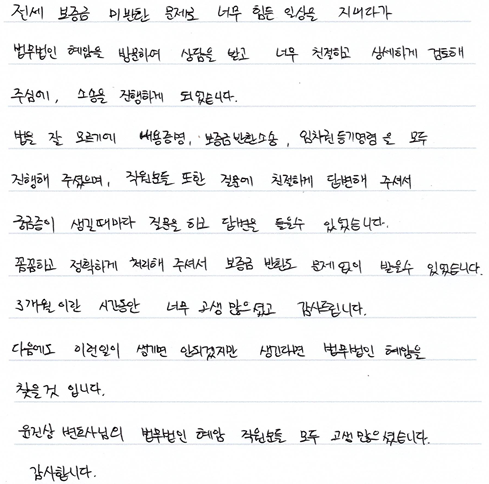 전세 보증금 미반환 문제로 너무 힘든 일상을 지내다가
법무법인 혜암을 방문하여 상담을 받고 너무 친절하고 상세하게 검토해
주심에, 소송을 진행하게 되었습니다.
법을 잘 모르기에 내용증명, 보증금반환소송, 임차권등기명령을 모두
진행해 주셨으며, 직원분들 또한 질문에 친절하게 답변해 주셔서
궁금증이 생길때마다 질문을 하고 답변을 들을수 있었습니다.
꼼꼼하고 정확하게 처리해 주셔서 보증금 반환도 문제 없이 받을수 있었습니다.
3개월이란 시간동안 너무 고생 많으셨고 감사드립니다.
다음에도 이런일이 생기면 안되겠지만 생긴다면 법무법인 혜암을
찾을것 입니다.
윤진상 변호사님의 법무법인 혜암 직원분들 모두 고생 많으셨습니다.
감사합니다.